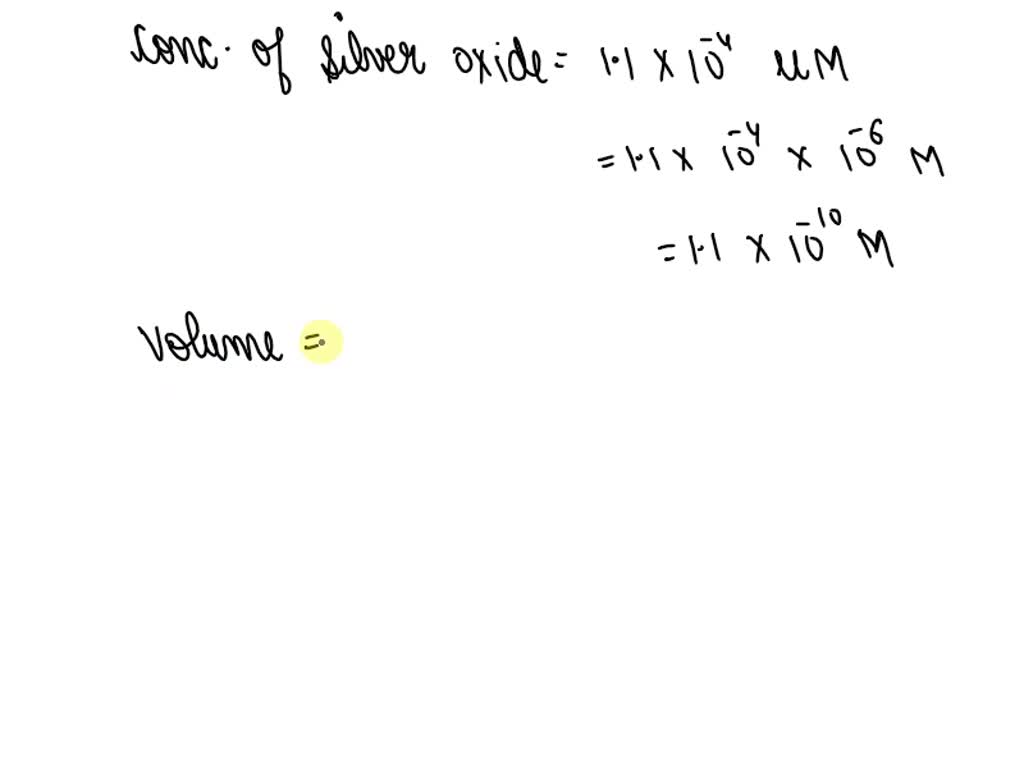 conc. of silver oxide = 1.1 × 10⁻⁴ uM
= 1.1 × 10⁻⁴ × 10⁻⁶ M
= 1.1 × 10⁻¹⁰ M
volume =